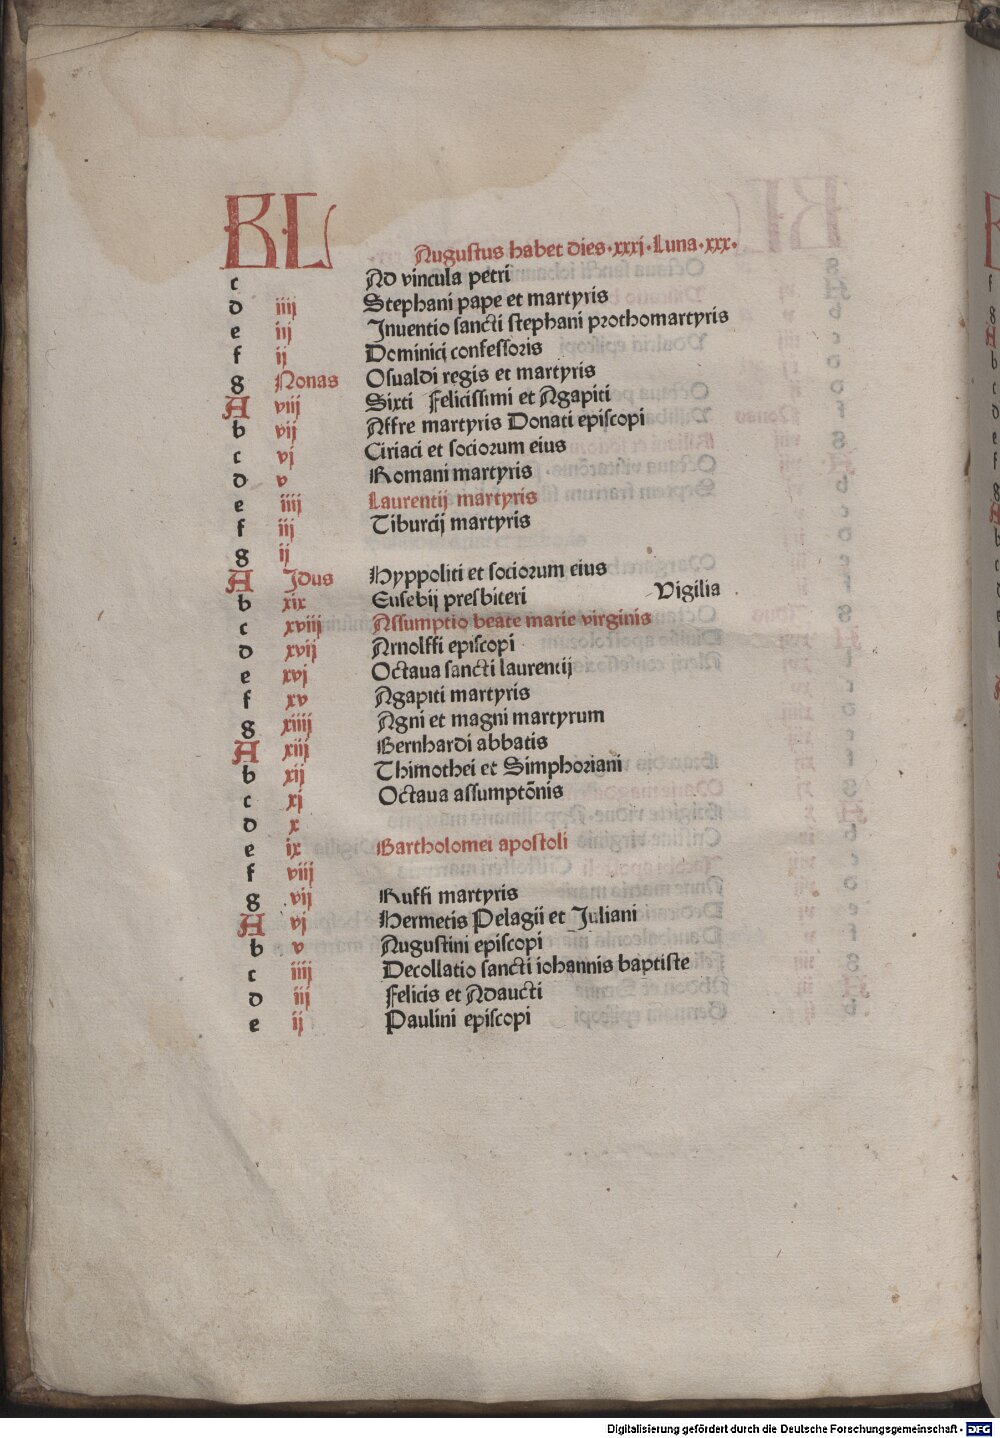 KL
Augustus habet dies·xxxj·Luna·xxx·
c Ad vincula petri
d iiij Stephani pape et martyris
e iij Jnuentio sancti stephani prothomartyris
f ij Dominici confessoris
g Nonas Osualdi regis et martyris
A viij Sixti Felicissimi et Agapiti
b vij Affre martyris Donati episcopi
c vj Ciriaci et sociorum eius
d v Romani martyris
e iiij Laurentij martyris
f iij Tiburcij martyris
g ij
A Jdus Hyppoliti et sociorum eius
b xix Eusebij presbiteri Vigilia
c xviij Assumptio beate marie virginis
d xvij Arnolffi episcopi
e xvj Octaua sancti laurentij
f xv Agapiti martyris
g xiiij Agni et magni martyrum
A xiij Bernhardi abbatis
b xij Thimothei et Simphoriani
c xj Octaua assumptōnis
d x
e ix Bartholomei apostoli
f viij
g vij Ruffi martyris
A vj Hermetis Pelagii et Juliani
b v Augustini episcopi
c iiij Decollatio sancti iohannis baptiste
d iij Felicis et Adaucti
e ij Paulini episcopi
Digitalisierung gefördert durch die Deutsche Forschungsgemeinschaft - DFG